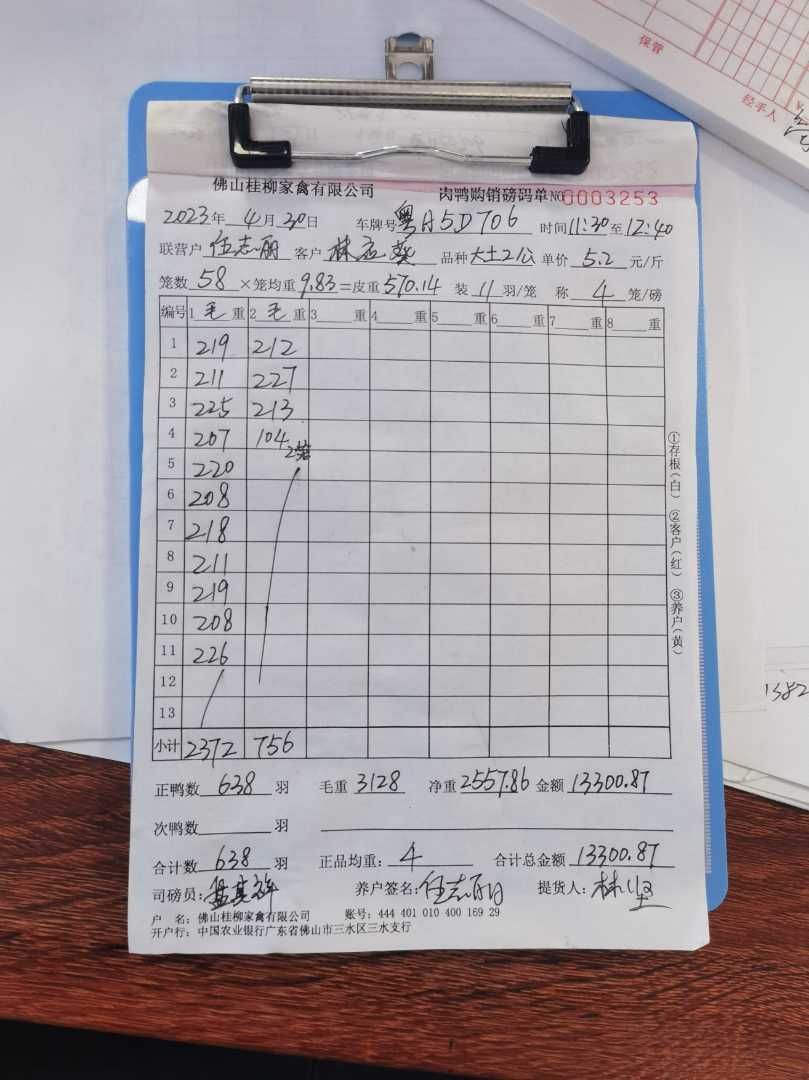 保管
经手人
佛山桂柳家禽有限公司 肉鸭购销磅码单 NO 0003253
2023年 4月 30日 车牌号 粤A5D706 时间 11:30 至 12:40
联营户 任志丽 客户 林应葵 品种 大土2公 单价 5.2 元/斤
笼数 58 ×笼均重 9.83 =皮重 570.14 装 11 羽/笼 称 4 笼/磅
编号 1 毛 重 2 毛 重 3 重 4 重 5 重 6 重 7 重 8 重
1 219 212
2 211 227
3 225 213
4 207 104 2笼
5 220
6 208
7 218
8 211
9 219
10 208
11 226
12
13
小计 2372 756
①存根(白) ②客户(红) ③养户(黄)
正鸭数 638 羽 毛重 3128 净重 2557.86 金额 13300.87
次鸭数 羽
合计数 638 羽 正品均重: 4 合计总金额 13300.87
司磅员: 养户签名: 任志丽 提货人: 林坚
户 名: 佛山桂柳家禽有限公司 账号: 444 401 010 400 169 29
开户行: 中国农业银行广东省佛山市三水区三水支行
1382